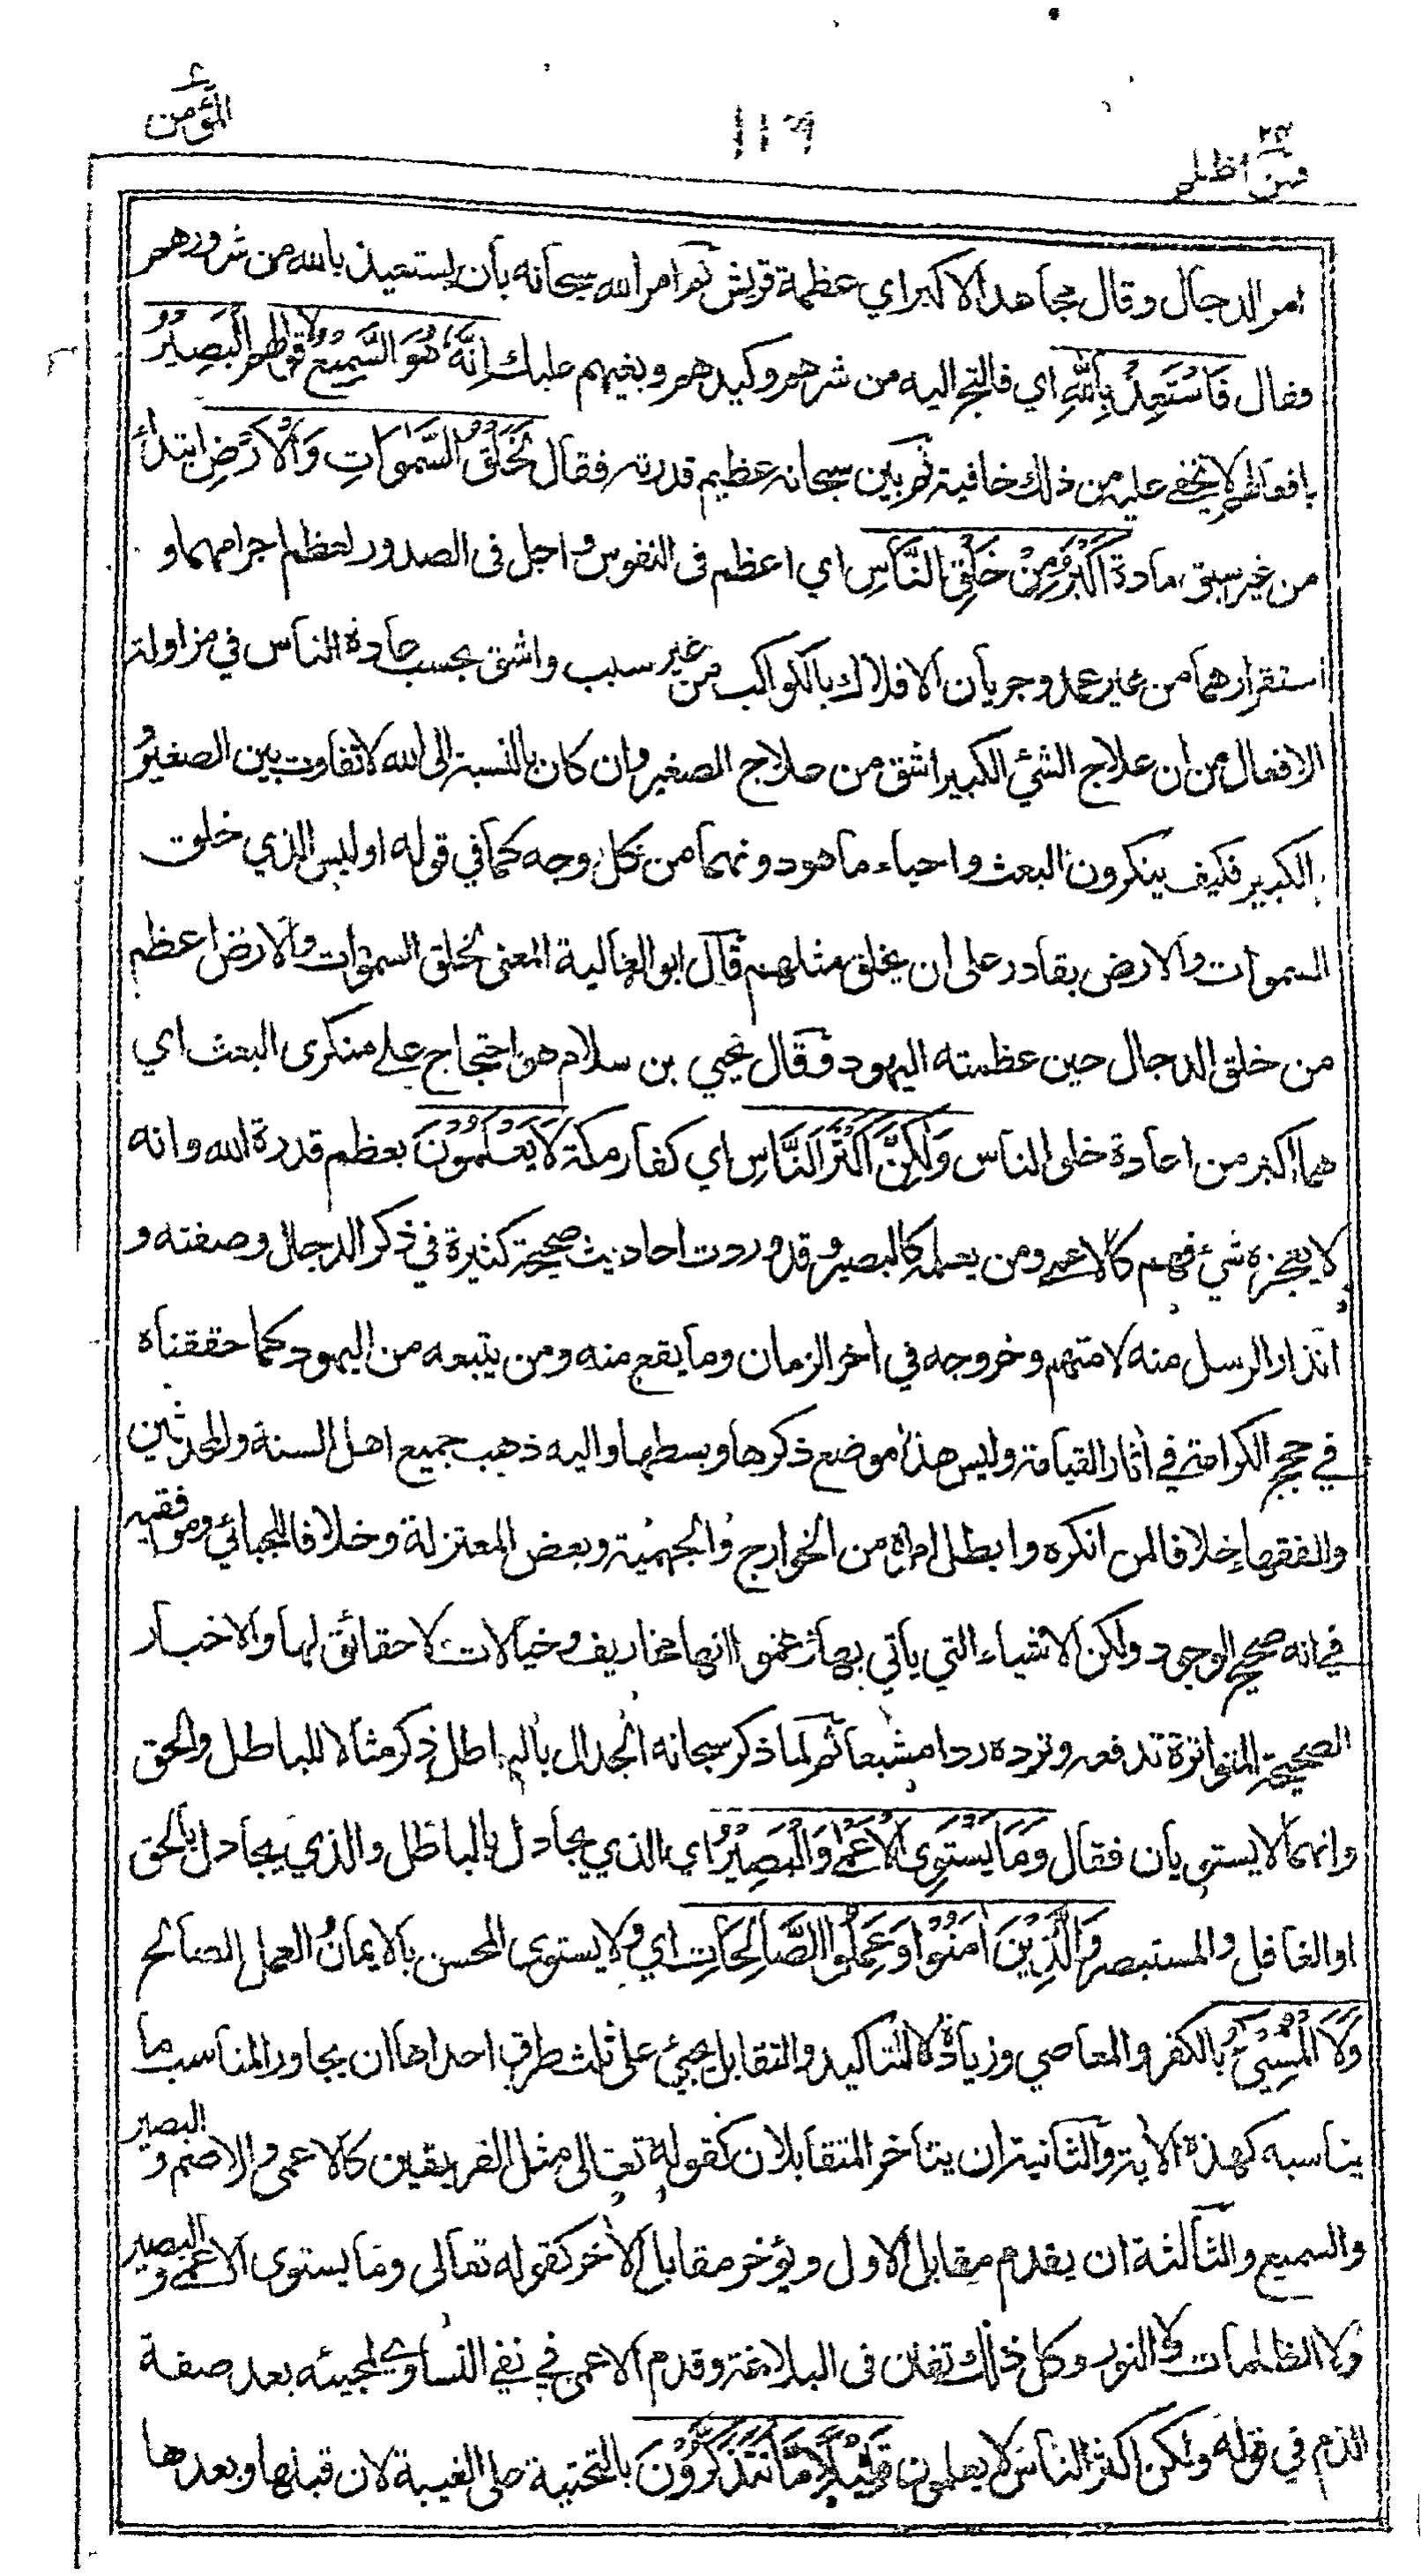 المؤمن
١١٩
فمن اظلم ٢٤
امر الدجال وقال مجاهد الاكبر اي عظمة قريش ثم امر الله سبحانه بأن يستعيذ بالله من شرورهم
فقال فَاسْتَعِذْ بِاللّٰهِ اي فالتجئ اليه من شرهم وكيدهم وبغيهم عليك اِنَّهُ هُوَ السَّمِيْعُ لاقوالهم الْبَصِيْرُ
بافعالهم لا يخفى عليه من ذلك خافية ثم بين سبحانه عظيم قدرته فقال لَخَلْقُ السَّمٰوَاتِ وَالْاَرْضِ ابتداء
من غير سبق مادة اَكْبَرُ مِنْ خَلْقِ النَّاسِ اي اعظم في النفوس واجل في الصدور لعظم اجرامهما و
استقرارهما من غير عمد وجريان الافلاك بالكواكب من غير سبب واشق بحسب عادة الناس في مزاولة
الافعال من ان علاج الشئ الكبير اشق من علاج الصغير وان كان بالنسبة الى الله لا تفاوت بين الصغير و
الكبير فكيف ينكرون البعث واحياء ما هو دونهما من كل وجه كما في قوله اوليس الذي خلق
السموات والارض بقادر على ان يخلق مثلهم قال ابو العالية المعنى لخلق السموات والارض اعظم
من خلق الدجال حين عظمته اليهود وقال يحيى بن سلام هو احتجاج على منكرى البعث اي
هما اكبر من اعادة خلق الناس وَلٰكِنَّ اَكْثَرَ النَّاسِ اي كفار مكة لَا يَعْلَمُوْنَ بعظم قدرة الله وانه
لا يعجزه شئ فهم كالاعمى ومن يعلمه كالبصير وقد وردت احاديث صحيحة كثيرة في ذكر الدجال وصفته و
انذار الرسل منه لامتهم وخروجه في اخر الزمان وما يقع منه ومن يتبعه من اليهود كما حققناه
في حجج الكرامة في اثار القيامة وليس هذا موضع ذكرها وبسطها واليه ذهب جميع اهل السنة والمحدثين
والفقها خلافا لمن انكره وابطل امره من الخوارج والجهمية وبعض المعتزلة وخلافا للجبائي وموافقيه
في انه صحيح الوجود ولكن الاشياء التي يأتي بها زعموا انها مخاريف وخيالات لا حقائق لها والاخبار
الصحيحة المتواترة تدفعه وترده ردا مشبعا ثم لما ذكر سبحانه الجدال بالباطل ذكر مثالا للباطل والحق
وانهما لا يستويان فقال وَمَا يَسْتَوِى الْاَعْمٰى وَالْبَصِيْرُ اي الذي يجادل بالباطل والذي يجادل بالحق
او الغافل والمستبصر وَالَّذِيْنَ اٰمَنُوْا وَعَمِلُوا الصَّالِحَاتِ اي ولا يستوى المحسن بالايمان و العمل الصالح
وَلَا الْمُسِيْئُ بالكفر والمعاصي وزيادة لا للتاكيد والتقابل يجيئ على ثلث طرق احداها ان يجاور المناسب ما
يناسبه كهذة الاية والثانية ان يتاخر المتقابلان كقوله تعالى مثل الفريقين كالاعمى والاصم و البصير
والسميع والثالثة ان يقدم مقابل الاول ويؤخر مقابل الأخر كقوله تعالى وما يستوى الاعمى و البصير
ولا الظلمات ولا النور وكل ذلك تفنن في البلاغة وقدم الاعمى في نفي التساوي لمجيئه بعد صفة
الذم في قوله ولكن اكثر الناس لا يعلمون قَلِيْلًا مَّا تَتَذَكَّرُوْنَ بالتحتية على الغيبة لان قبلها وبعدها